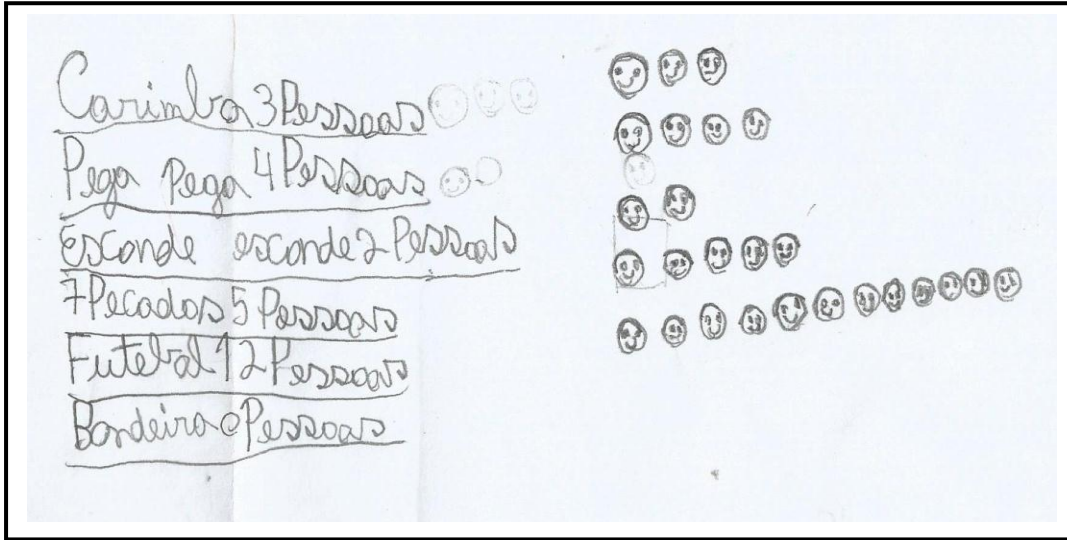 Carimba 3 Pessoas
Pega Pega 4 Pessoas
Esconde esconde 2 Pessoas
7 Pecados 5 Pessoas
Futebol 12 Pessoas
Bandeira 0 Pessoas